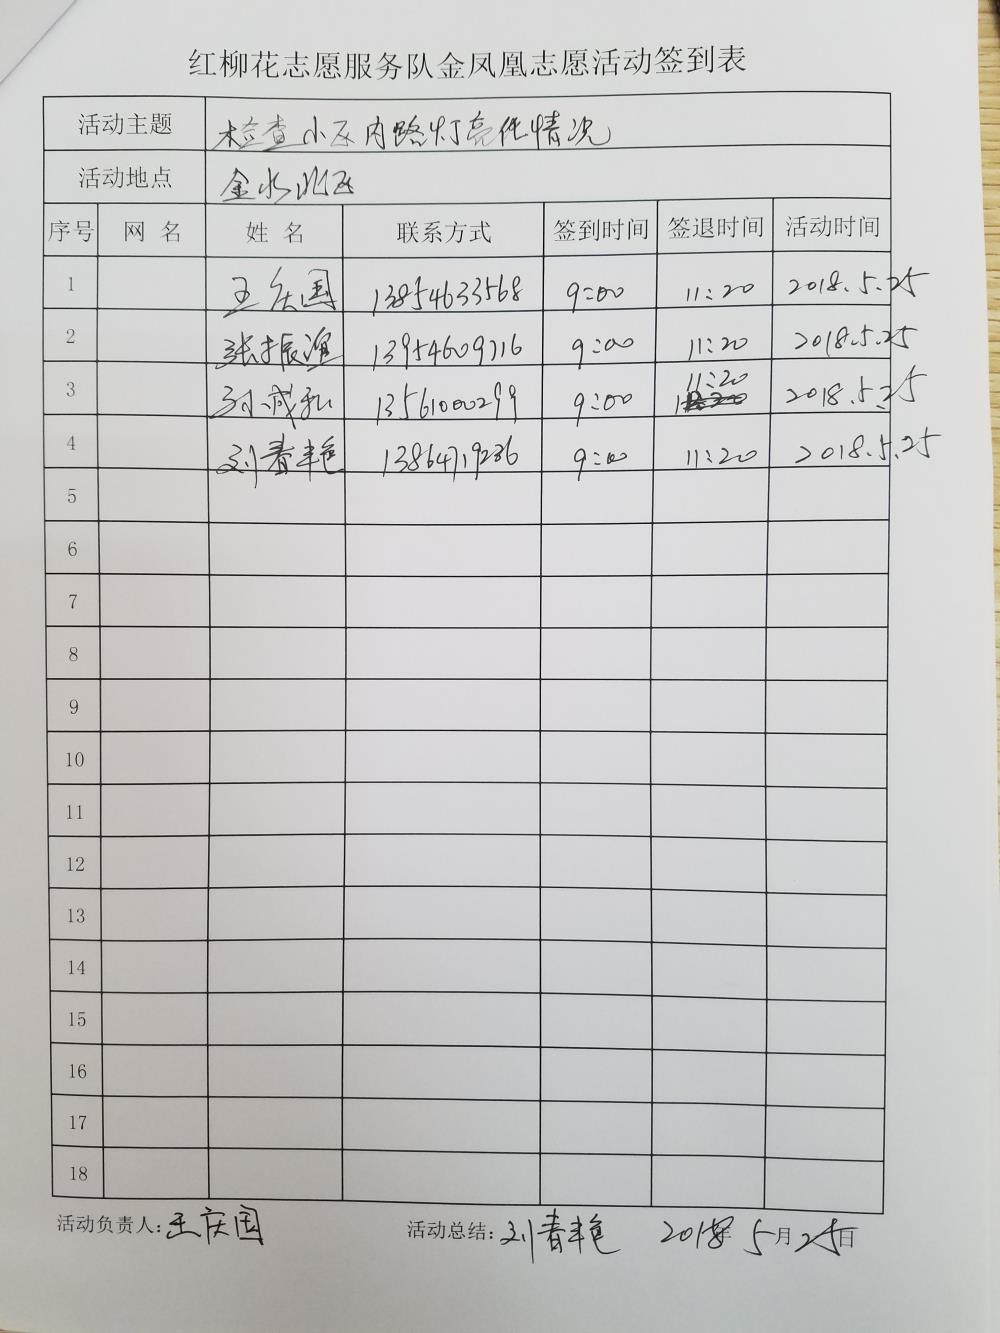 红柳花志愿服务队金凤凰志愿活动签到表
活动主题 检查小区内路灯亮化情况
活动地点 金水北区
序号 网名 姓名 联系方式 签到时间 签退时间 活动时间
1 王庆国 13854633568 9:00 11:20 2018.5.25
2 张振 13954609716 9:00 11:20 2018.5.25
3 孙 13561000299 9:00 11:20 2018.5.25
4 刘青艳 13864719236 9:00 11:20 2018.5.25
5
6
7
8
9
10
11
12
13
14
15
16
17
18
活动负责人:王庆国 活动总结:刘青艳 2018年5月25日